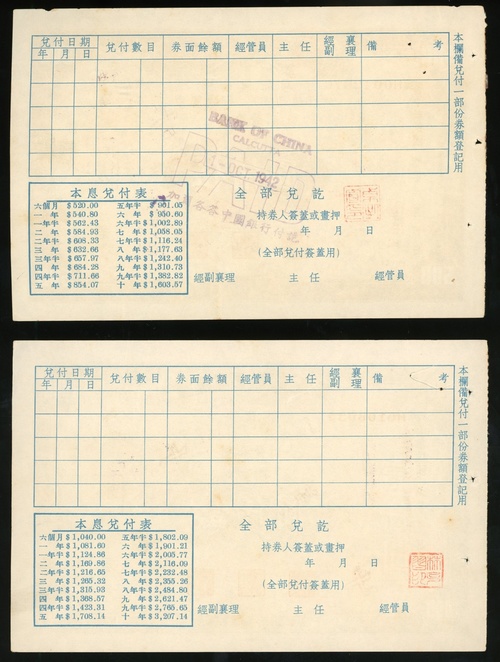 兌付日期 兌付數目 券面餘額 經管員 主任 經副襄理 備考
年 月 日
本欄備兌付一部份券額登記用
BANK OF CHINA
CALCUTTA
PAID
OCT 1942
加爾各答中國銀行付訖
本息兌付表
六個月 $520.00 五年半 $901.05
一年 $540.80 六年 $950.60
一年半 $562.43 六年半 $1,002.89
二年 $584.93 七年 $1,058.05
二年半 $608.33 七年半 $1,116.24
三年 $632.66 八年 $1,177.63
三年半 $657.97 八年半 $1,242.40
四年 $684.28 九年 $1,310.73
四年半 $711.66 九年半 $1,382.82
五年 $854.07 十年 $1,603.57
全部兌訖
持券人簽蓋或畫押
年 月 日
(全部兌付簽蓋用)
經副襄理 主任 經管員
兌付日期 兌付數目 券面餘額 經管員 主任 經副襄理 備考
年 月 日
本欄備兌付一部份券額登記用
本息兌付表
六個月 $1,040.00 五年半 $1,802.09
一年 $1,081.60 六年 $1,901.21
一年半 $1,124.86 六年半 $2,005.77
二年 $1,169.86 七年 $2,116.09
二年半 $1,216.65 七年半 $2,232.48
三年 $1,265.32 八年 $2,355.26
三年半 $1,315.93 八年半 $2,484.80
四年 $1,368.57 九年 $2,621.47
四年半 $1,423.31 九年半 $2,765.65
五年 $1,708.14 十年 $3,207.14
全部兌訖
持券人簽蓋或畫押
年 月 日
(全部兌付簽蓋用)
經副襄理 主任 經管員